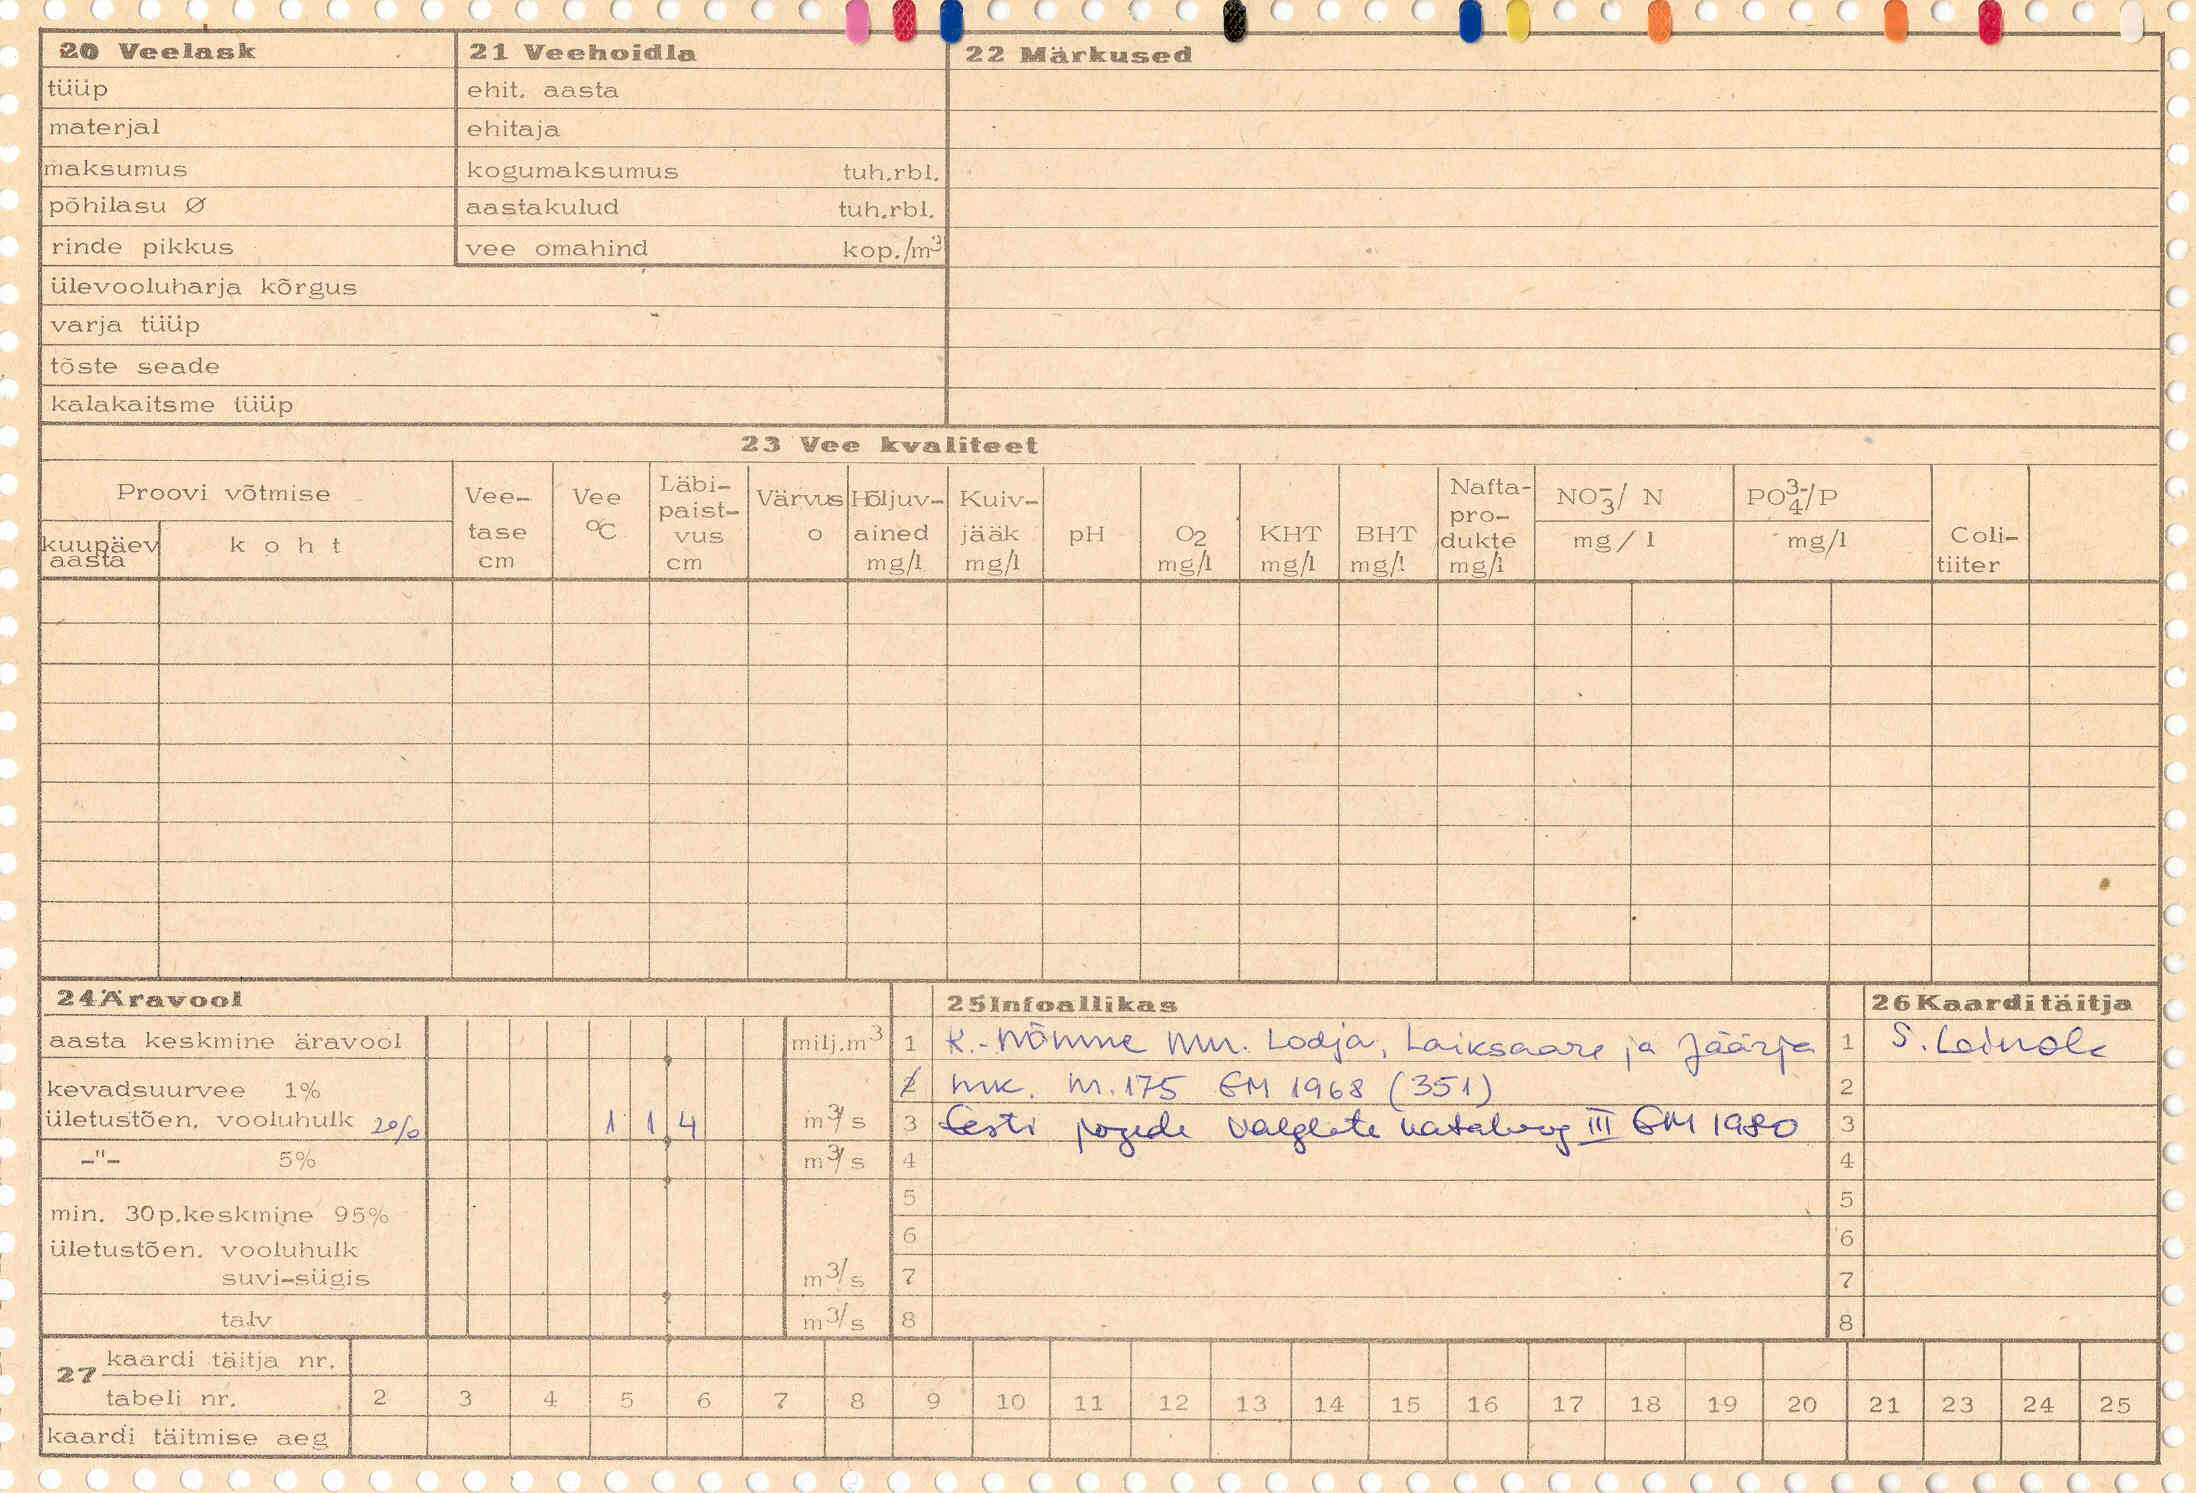 20 Veelask
tüüp
materjal
maksumus
põhilasu Ø
rinde pikkus
ülevooluharja kõrgus
varja tüüp
tõste seade
kalakaitsme tüüp
21 Veehoidla
ehit. aasta
ehitaja
kogumaksumus tuh.rbl.
aastakulud tuh.rbl.
vee omahind kop./m³
22 Märkused
23 Vee kvaliteet
Proovi võtmise
kuupäev aasta
koht
Vee-
tase
cm
Vee
°C
Läbi-
paist-
vus
cm
Värvus
o
Hõljuv-
ained
mg/l
Kuiv-
jääk
mg/l
pH
O₂
mg/l
KHT
mg/l
BHT
mg/l
Nafta-
pro-
dukte
mg/l
NO₃⁻/ N
mg/l
PO₄³⁻/P
mg/l
Coli-
tiiter
24 Äravool
aasta keskmine äravool milj.m³
kevadsuurvee 1%
ületustõen. vooluhulk 2% 1 1 4 m³/s
-"- 5% m³/s
min. 30p.keskmine 95%
ületustõen. vooluhulk
suvi-sügis m³/s
talv m³/s
25 Infoallikas
1 K.-Nõmme mn. Lodja, Laiksaare ja Jäärja
2 mk. m.175 EM 1968 (351)
3 Eesti jõgede valglate kataloog III EM 1980
4
5
6
7
8
26 Kaarditäitja
1 S.
2
3
4
5
6
7
8
27 kaardi täitja nr.
tabeli nr. 2 3 4 5 6 7 8 9 10 11 12 13 14 15 16 17 18 19 20 21 23 24 25
kaardi täitmise aeg